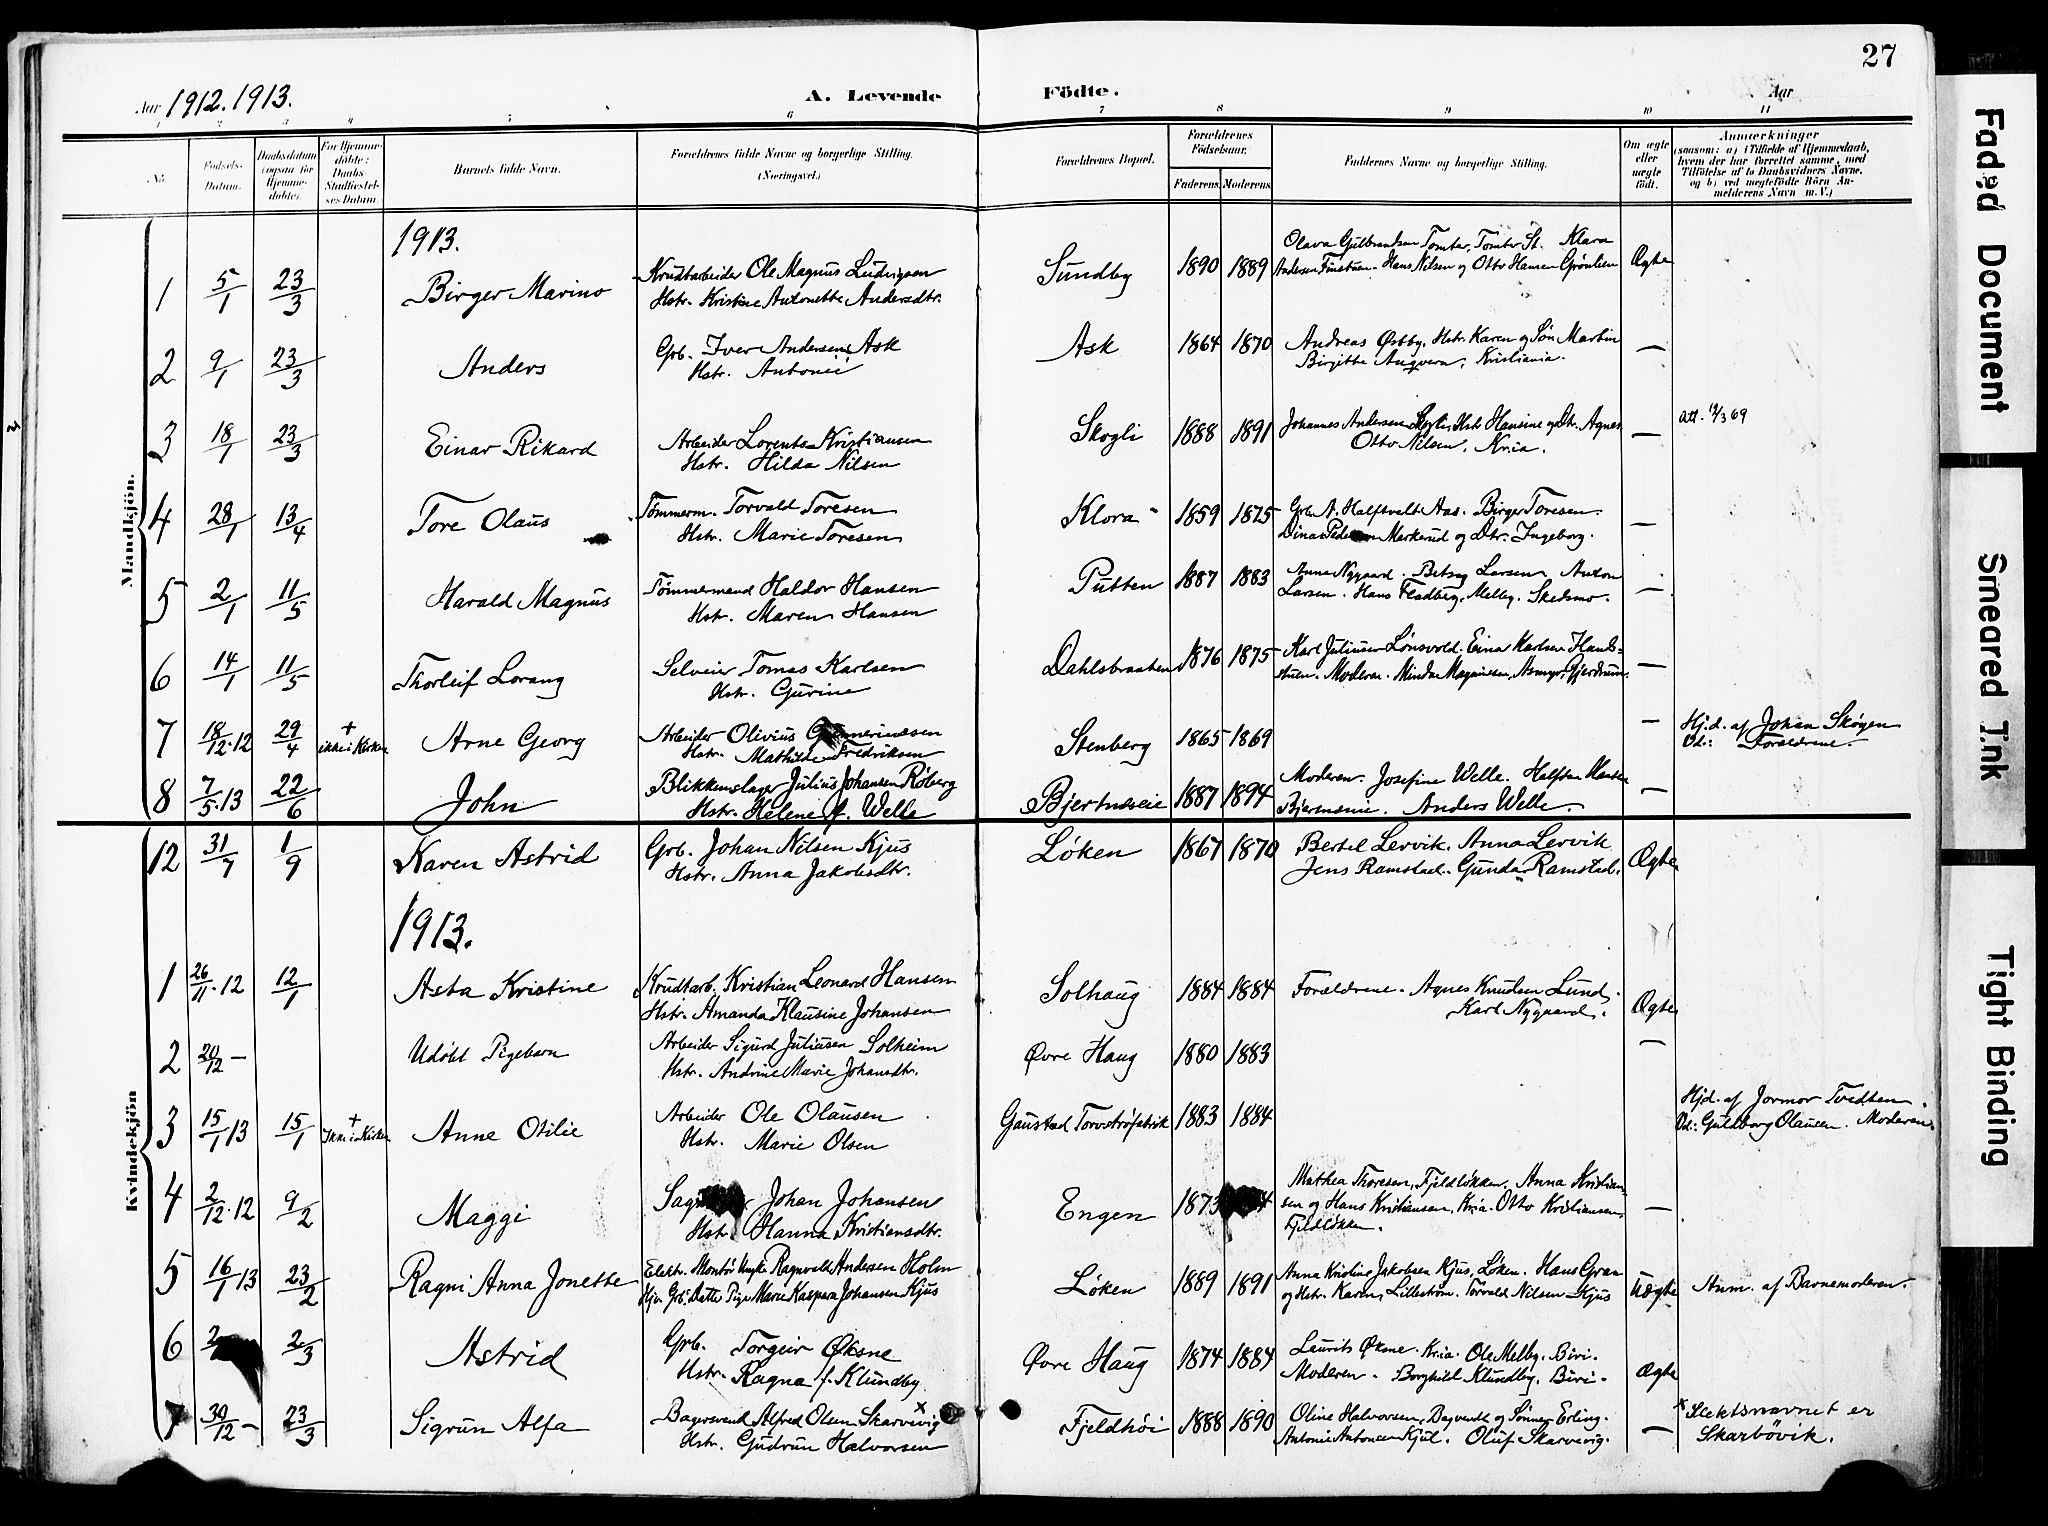 27
Aar 1912. 1913.
A. Levende Födte.
Aar
1 2 3 4 5 6 7 8 9 10 11
No
Fødsels-Datum.
Daabsdatum (ogsaa for Hjemmedöbte).
For Hjemmedöbte: Daabs-Stadfæstelses Datum.
Barnets fulde Navn.
Forældrenes fulde Navne og borgerlige Stilling. (Næringsvei.)
Forældrenes Bopæl.
Forældrenes Födselsaar.
Faderens. Moderens.
Faddernes Navne og borgerlige Stilling.
Om ægte eller uægte födt.
Anmærkninger
(saasom: a) i Tilfælde af Hjemmedaab, hvem der har forrettet samme, med Tilföielse af to Daabsvidners Navne. og b) ved uægtefödte Börn Anmelderens Navn m. V.)
Mandkjön.
1913.
1 5/1 23/3 Birger Marino Krudtarbeider Ole Magnus Ludvigsen Sundby 1890 1889 Olava Gulbrandsen Tomter, Tomter St. Klara Ægte
Hstr. Kristine Antonette Andersdtr. Andersen Finstuen. Hans Nilsen og Otto Hansen Grønlien
2 9/1 23/3 Anders Grb. Iver Andersen Ask Ask 1864 1870 Andreas Østby, Hstr. Karen og Søn Martin —
Hstr. Antonie Birgitte Angvern, Kristiania.
3 18/1 23/3 Einar Rikard Arbeider Lorents Kristiansen Skogli 1888 1891 Johannes Andersen Skogli, Hstr Hansine og Dtr. Agnes — Att. 12/3 69
Hstr. Hilda Nilsen Otto Nilsen, Kria.
4 28/1 13/4 Tore Olaus Tømmerm. Torvald Toresen Klora 1859 1875 Grb. A. Halftvelt Aas. Birger Toresen. —
Hstr. Marie Toresen Dina Pedersen Markerud og Dtr. Ingeborg.
5 2/1 11/5 Harald Magnus Tømmermand Haldor Hansen Putten 1887 1883 Anna Nygaard. Betsy Larsen, Anton —
Hstr. Maren Hansen Larsen. Hans Fladberg, Melby. Skedsmo.
6 14/1 11/5 Thorleif Lorang Selveier Tomas Karlsen Dahlsbraaten 1876 1875 Karl Juliusen Lønsvold. Eina Karlsen —
Hstr. Gurine Moderen. Minda Magnusen, Asmyr, Gjerdrum.
7 18/12.12 29/4 + ikke i Kirken Arne Georg Arbeider Olivius Stenberg 1865 1869 — Hjd. af Johan Skøyen
Hstr. Mathilde Fredriksen Vd.: Forældrene.
8 7/5.13 22/6 John Blikkenslager Julius Johansen Røberg Bjertnæseie 1887 1894 Moderen. Josefine Welle. Halften Hansen —
Hstr. Helene f. Welle Anders Welle.
12 31/7 1/9 Karen Astrid Grb. Johan Nilsen Kjus Løken 1867 1870 Bertel Lervik. Anna Lervik Ægte
Hstr. Anna Jakobsdtr. Jens Ramstad. Gunda Ramstad.
Kvindekjön
1913.
1 26/11.12 12/1 Asta Kristine Krudtarb. Kristian Leonard Hansen Solhaug 1884 1884 Forældrene. Agnes Knudsen Lund, Ægte
Hstr. Amanda Klausine Johansen Karl Nygaard.
2 20/12 — Udøbt Pigebarn Arbeider Sigurd Juliusen Solheim Øvre Haug 1880 1883 —
Hstr. Andrine Marie Johansdtr.
3 15/1 13 15/1 + Ikke i Kirken Anne Otilie Arbeider Ole Olausen Gaustad Torvstrøfabrik 1883 1884 Hjd. af Jormor Tvedten.
Hstr. Marie Olsen Vd.: Guldborg Olausen. Moderen.
4 2/12.12 9/2 Maggi Johan Johansen Engen 1873 Mathea Thoresen, Fjeldløkken. Anna Kristian- —
Hstr. Hanna Kristiansdtr. sen og Hans Kristiansen, Kria. Otto Kristiansen,
Fjeldløkken.
5 16/1 13 23/2 Ragni Anna Jonette Elektr. Montør Ungk. Ragnvald Andersen Holm Løken 1889 1891 Anna Kristine Jakobsen Kjus, Løken. Hans Gran Uægte Anm. af Barnemoderen.
Grb. Datter Pige Marie Kaspara Johansen Kjus og Hstr. Karen, Lillestrøm. Torvald Nilsen Kjus
6 2/3 Astrid Grb. Torgeir Øksne Øvre Haug 1874 1884 Laurits Øksne. Kria. Ole Melby, Biri. Ægte
Hstr. Ragna f. Klundby. Moderen. Borghild Klundby, Biri.
7 30/12 — 23/3 Sigrun Alfa Bagersvend Alfred Olsen Skarvevig x Fjeldhöi 1888 1890 Oline Halvorsen, Bagvendt og Sønner Erling. — x Slektsnavnet er
Hstr. Gudrun Halvorsen Antonie Antonsen Kjul. Oluf Skarvevig. Skarbövik.
Faded Document
Smeared Ink
Tight Binding